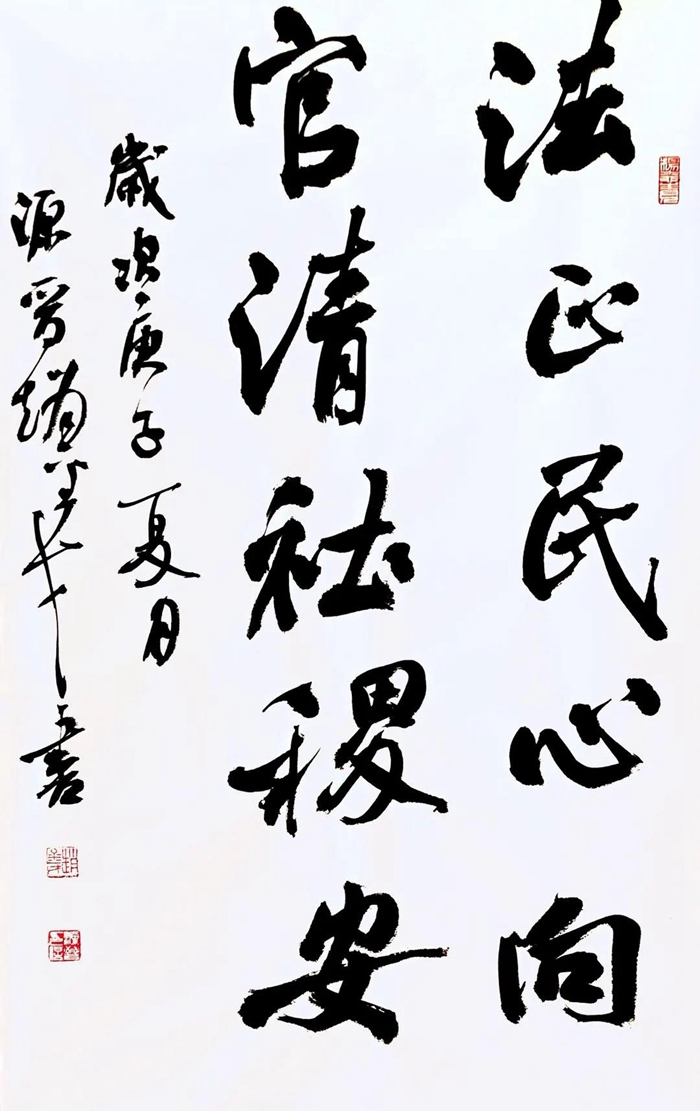 法正民心向
官清社稷安
歲次庚子夏月
源晉趙
書